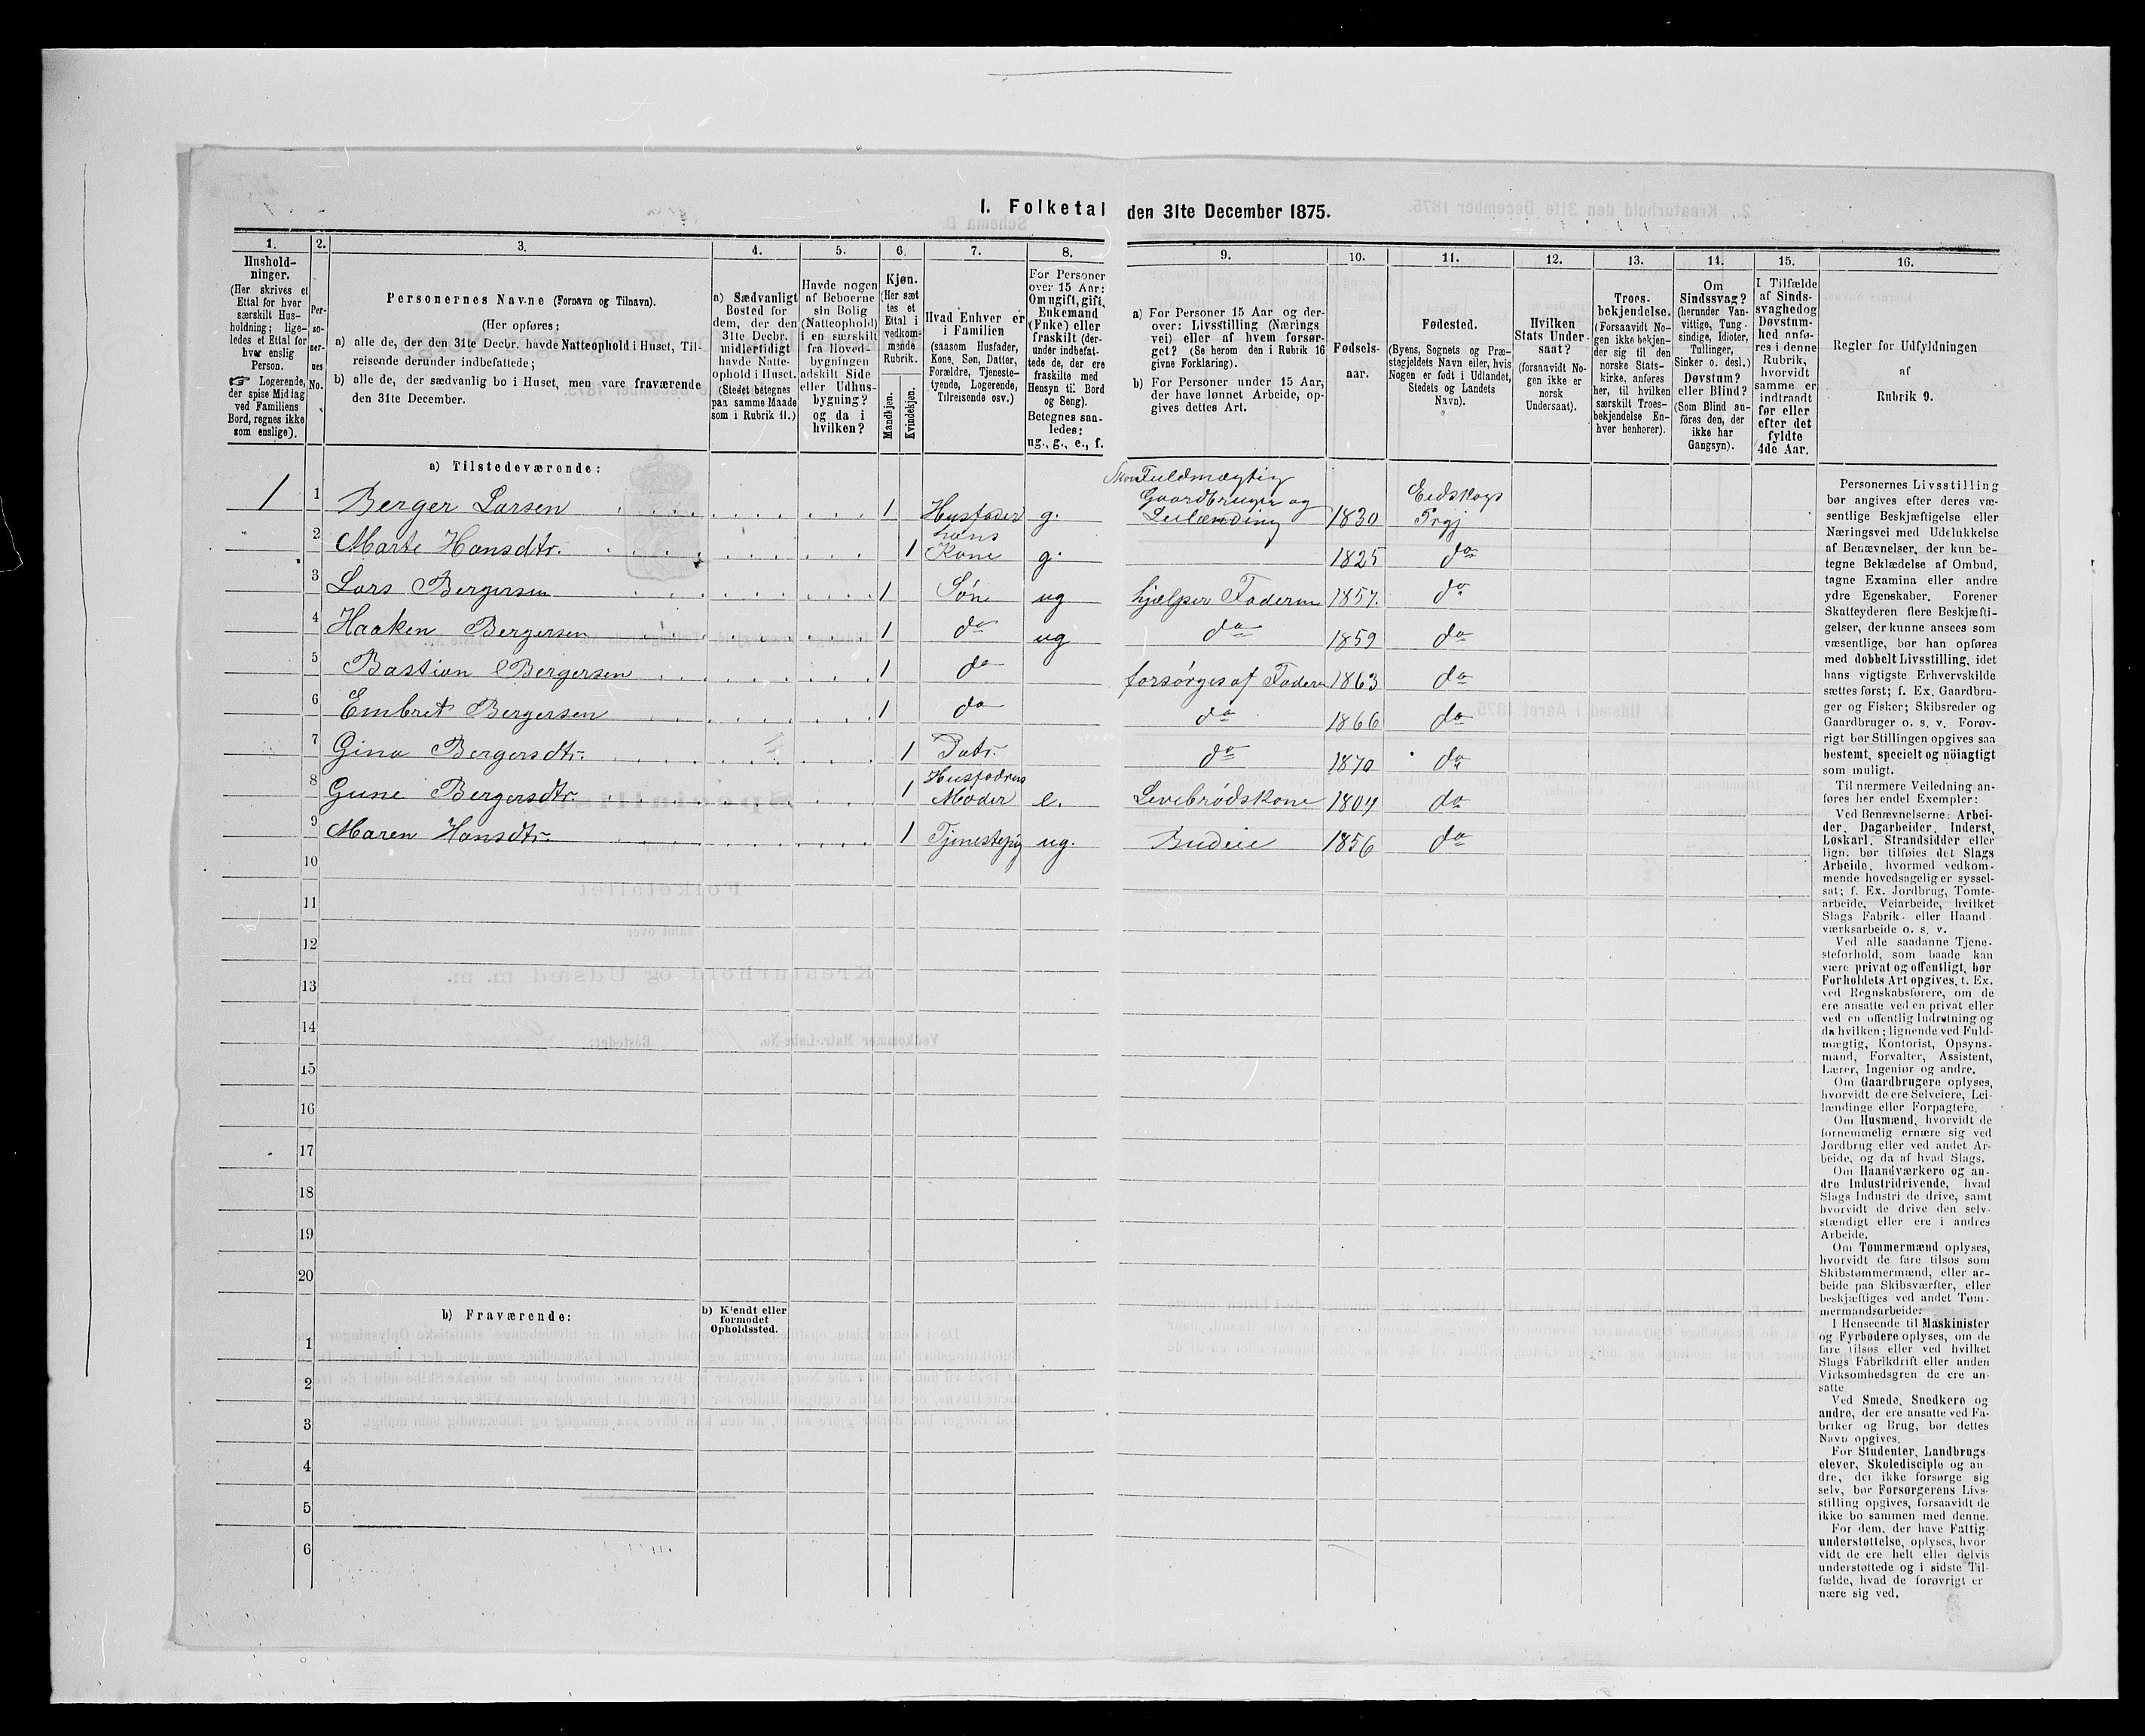 1. Folketal den 31te December 1875.
1. 2. 3. 4. 5. 6. 7. 8. 9. 10. 11. 12. 13. 14. 15. 16.
Hushold-
ninger.
(Her skrives et
Ettal for hver
særskilt Hus-
holdning; lige-
ledes et Ettal for
hver enslig
Person.
☞ Logerende,
der spise Middag
ved Familiens
Bord, regnes ikke
som enslige).
Per-
so-
ner-
nes
No.
Personernes Navne (Fornavn og Tilnavn).
(Her opføres:
a) alle de, der den 31te Decbr. havde Natteophold i Huset, Til-
reisende derunder indbefattede;
b) alle de, der sædvanlig bo i Huset, men vare fraværende
den 31te December.
a) Sædvanligt
Bosted for
dem, der den
31te Decbr.
midlertidigt
havde Natte-
ophold i Huset.
(Stedet betegnes
paa samme Maade
som i Rubrik 11.)
Havde nogen
af Beboerne
sin Bolig
(Natteophold)
i en særskilt
fra Hoved-
bygningen
adskilt Side
eller Udhus-
bygning?
og da i
hvilken?
Kjøn.
(Her sæt
tes et
Ettal i
vedkom-
mende
Rubrik.
Mandkjøn.
Kvindekjøn.
Hvad Enhver er
i Familien
(saasom Husfader,
Kone, Søn, Datter,
Forældre, Tjeneste-
tyende, Logerende,
Tilreisende osv.)
For Personer
over 15 Aar:
Om ugift, gift,
Enkemand
(Enke) eller
fraskilt (der-
under indbefat-
tede de, der ere
fraskilte med
Hensyn til Bord
og Seng).
Betegnes saa-
ledes:
ug., g., e., f.
a) For Personer 15 Aar og der-
over: Livsstilling (Nærings
vei) eller af hvem forsør-
get? (Se herom den i Rubrik 16
givne Forklaring).
b) For Personer under 15 Aar,
der have lønnet Arbeide, op-
gives dettes Art.
Fødsels-
aar.
Fødested.
(Byens, Sognets og Præ-
stegjeldets Navn eller, hvis
Nogen er født i Udlandet,
Stedets og Landets
Navn).
Hvilken
Stats Under-
saat?
(forsaavidt No-
gen ikke er
norsk
Undersaat).
Troes-
bekjendelse.
(Forsaavidt No-
gen ikke bekjen-
der sig til den
norske Stats-
kirke, anføres
her, til hvilken
særskilt Troes-
bekjendelse En-
hver henhører).
Om
Sindssvag?
(herunder Van-
vittige, Tung-
sindige, Idioter,
Tullinger,
Sinker o. desl.)
Døvstum?
eller Blind?
(Som Blind an-
føres den, der
ikke har
Gangsyn).
I Tilfælde
af Sinds-
svaghed og
Døvstum-
hed anfø-
res i denne
Rubrik,
hvorvidt
samme er
indtraadt
før eller
efter det
fyldte
4de Aar.
Regler for Udfyldningen
af
Rubrik 9.
a) Tilstedeværende:
Fuldmægtig
1 1 Berger Larsen 1 Husfader g. Gaardbruger og Leilænding 1830 Eidskogs Prgj
2 Marte Hansdtr. 1 hans Kone g. 1825 do
3 Lars Bergersen 1 Søn ug hjælper Faderen 1857. do
4 Haaken Bergersen 1 do ug do 1859 do
5 Bastian Bergersen 1 do forsørges af Faderen 1863 do
6 Embret Bergersen 1 do do 1866 do
7 Gina Bergersdtr. 1 Datr. do 1870 do
8 Gune Bergersdtr. 1 Husfadrens Moder e. Levebrødskone 1804 do
9 Maren Hansdtr. 1 Tjenestepig ug. Budeie 1856 do
10
11
12
13
14
15
16
17
18
19
20
b) Fraværende:
b) Kjendt eller
formodet
Opholdssted.
1
2
3
4
5
6
Personernes Livsstilling
bør angives efter deres væ-
sentlige Beskjæftigelse eller
Næringsvei med Udelukkelse
af Benævnelser, der kun be-
tegne Beklædelse af Ombud,
tagne Examina eller andre
ydre Egenskaber. Forener
Skatteyderen flere Beskjæfti-
gelser, der kunne ansees som
væsentlige, bør han opføres
med dobbelt Livsstilling, idet
hans vigtigste Erhvervskilde
sættes først; f. Ex. Gaardbru-
ger og Fisker; Skibsreder og
Gaardbruger o. s. v. Forøv-
rigt bør Stillingen opgives saa
bestemt, specielt og nöiagtigt
som muligt.
Til nærmere Veiledning an-
føres her endel Exempler:
Ved Benævnelserne: Arbei-
der, Dagarbeider, Inderst,
Løskarl, Strandsidder eller
lign. bør tilføies det Slags
Arbeide, hvormed vedkom-
mende hovedsagelig er syssel-
sat; f. Ex. Jordbrug, Tomte-
arbeide, Veiarbeide, hvilket
Slags Fabrik- eller Haand-
værksarbeide o. s. v.
Ved alle saadanne Tjene-
steforhold, som baade kan
være privat og offentligt, bør
Forholdets Art opgives, t. Ex.
ved Regnskabsførere, om de
ere ansatte ved en privat eller
ved en offentlig Indretning og
da hvilken; lignende ved Fuld-
mægtig, Kontorist, Opsyns-
mand, Forvalter, Assistent,
Lærer, Ingeniør og andre.
Om Gaardbrugere oplyses,
hvorvidt de ere Selveiere, Lei-
lændinge eller Forpagtere.
Om Husmænd, hvorvidt de
fornemmelig ernære sig ved
Jordbrug eller ved andet Ar-
beide, og da af hvad Slags.
Om Haandværkere og an-
dre Industridrivende, hvad
Slags Industri de drive, samt
hvorvidt de drive den selv-
stændigt eller ere i andres
Arbeide.
Om Tømmermænd oplyses,
hvorvidt de fare tilsøs som
Skibstømmermænd, eller ar-
beide paa Skibsværfter, eller
beskjæftiges ved andet Tøm-
mermandsarbeide.
I Henseende til Maskinister
og Fyrbødere oplyses, om de
fare tilsøs eller ved hvilket
Slags Fabrikdrift eller anden
Virksomhedsgren de ere an-
satte
Ved Smede, Snedkere og
andre, der ere ansatte ved Fa-
briker og Brug, bør dettes
Navn opgives.
For Studenter, Landbrugs
elever, Skoledisciple og an
dre, der ikke forsørge sig
selv, bør Forsørgerens Livs-
stilling opgives, forsaavidt de
ikke bo sammen med denne.
For dem, der have Fattig-
understøttelse, oplyses, hvor
vidt de ere helt eller delvis
understøttede og i sidste Til-
fælde, hvad de forøvrigt er
nære sig ved.